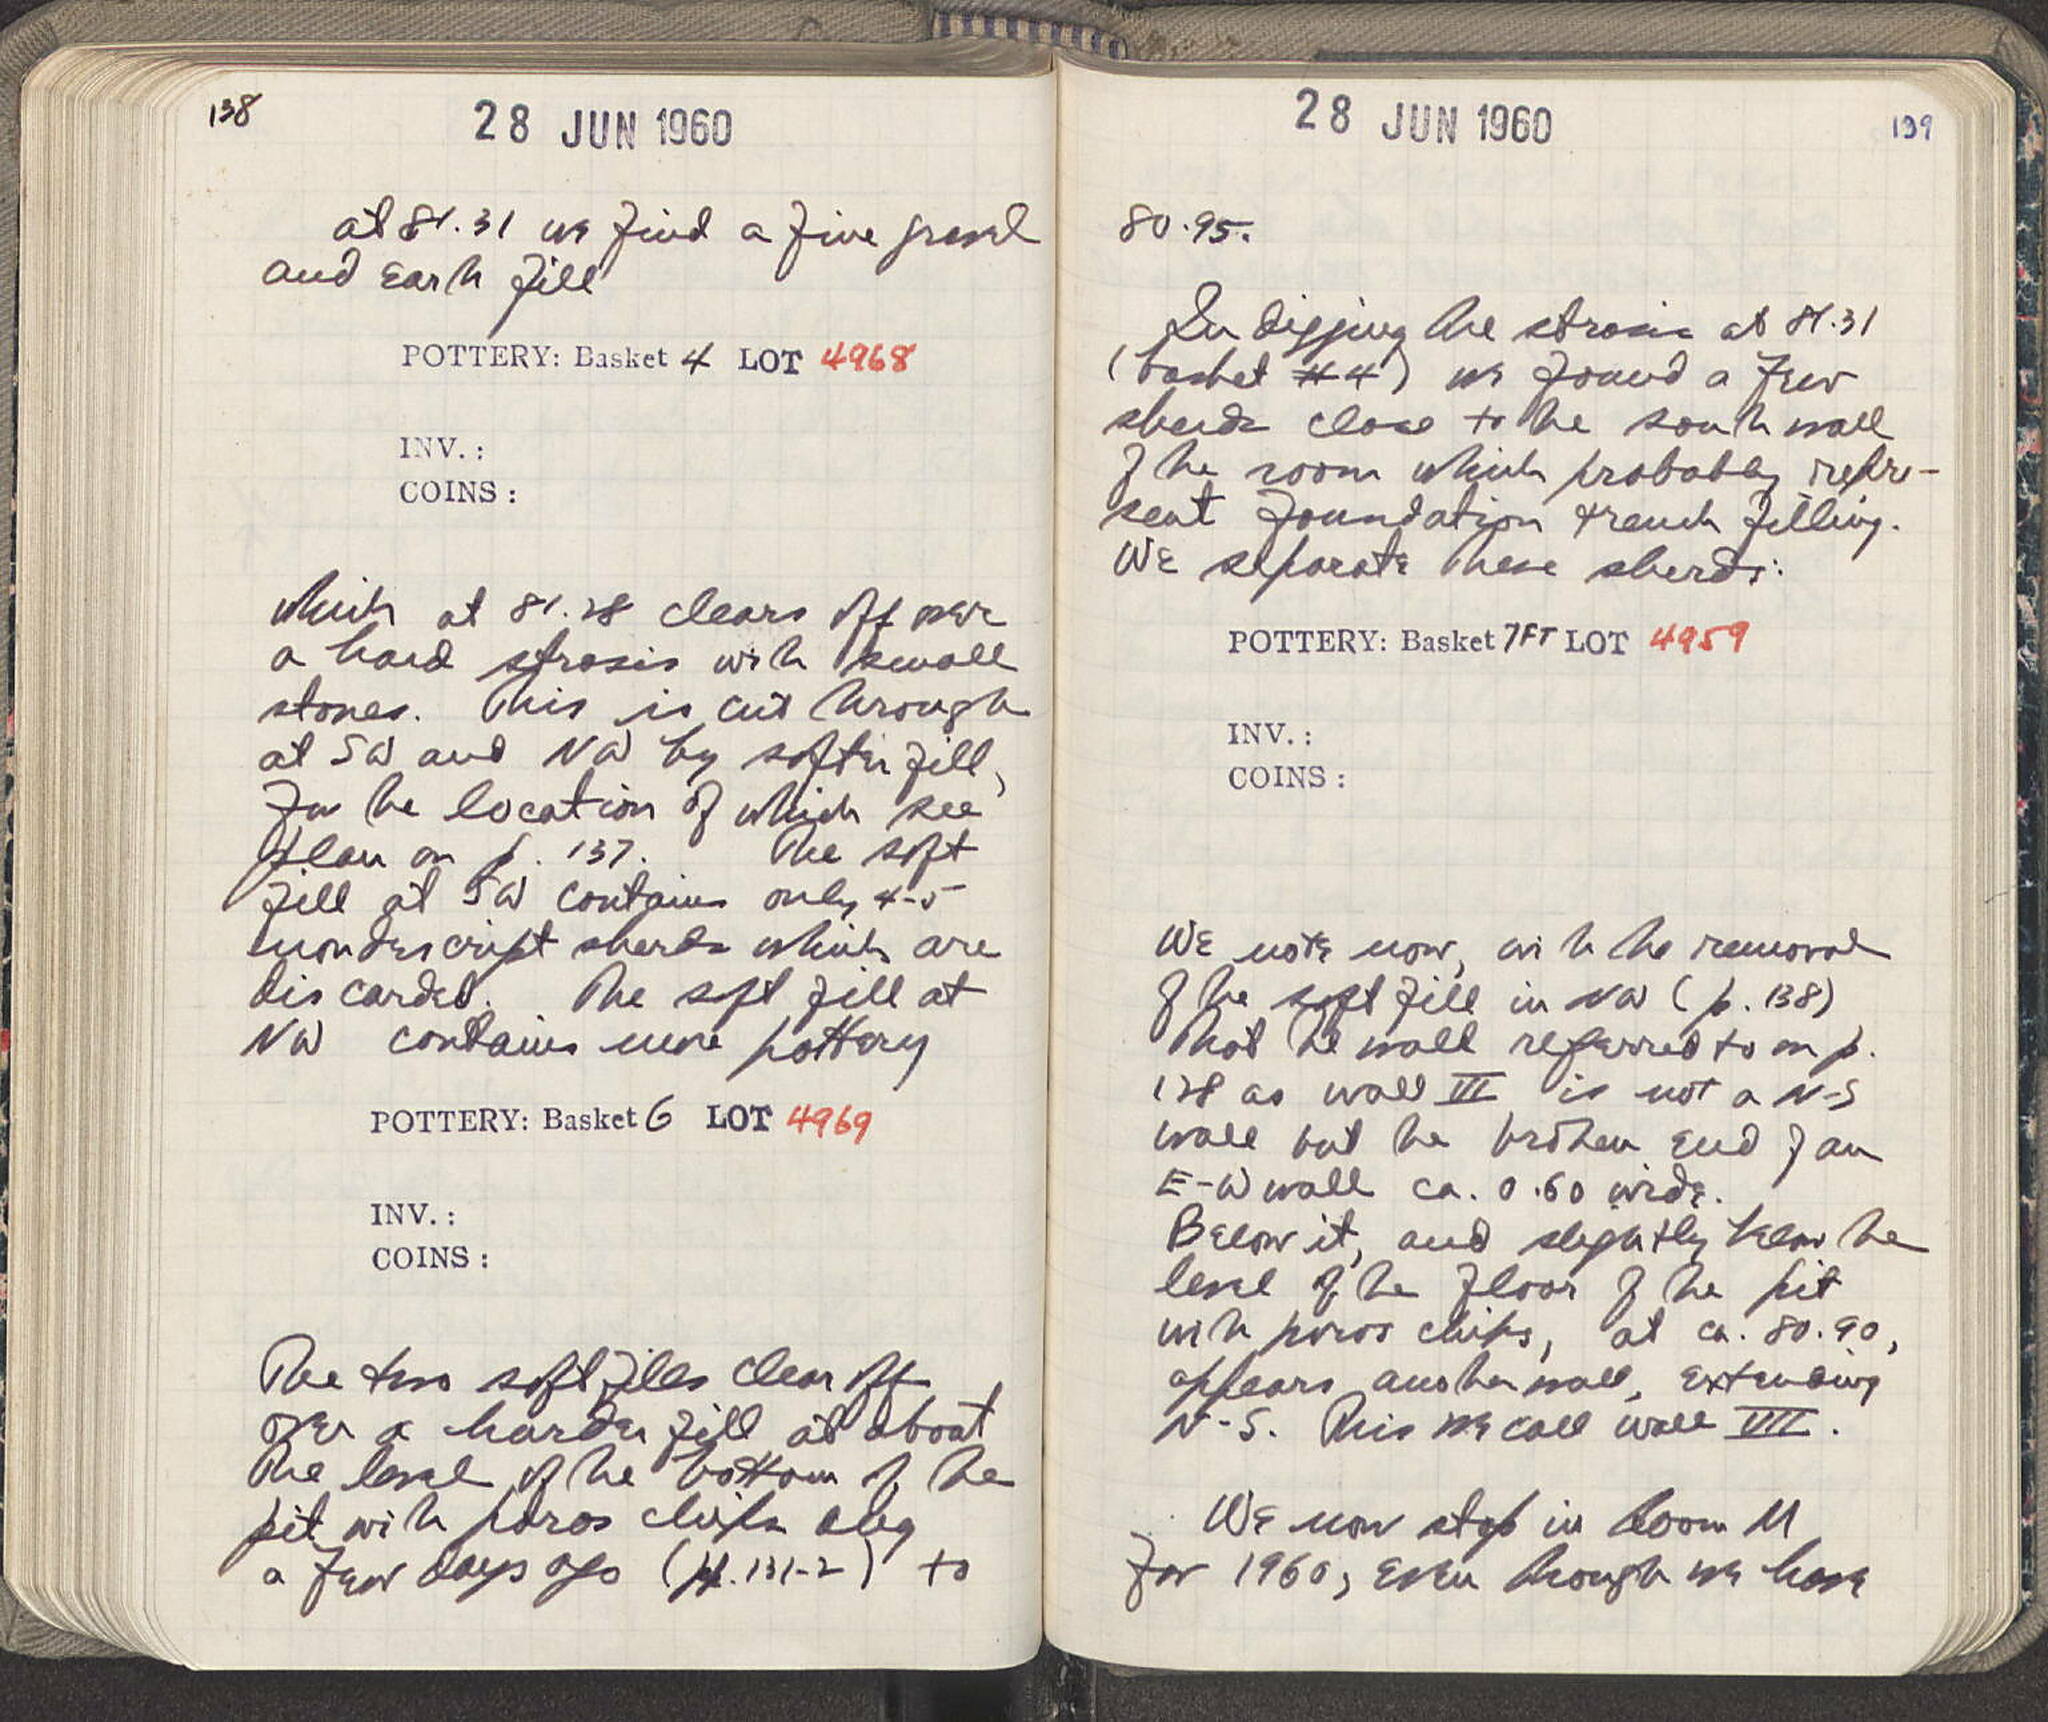 138
28 JUN 1960
at 81.31 we find a fine gravel
and earth fill
POTTERY: Basket 4 LOT 4968
INV.:
COINS:
which at 81.28 clears off over
a hard strosis with small
stones. This is cut through
at SW and NW by softer fill,
for the location of which see
plan on p. 137. The soft
fill at SW contains only 4-5
nondescript sherds which are
discarded. The soft fill at
NW contains more pottery
POTTERY: Basket 6 LOT 4969
INV.:
COINS:
The two soft fills clear off
over a harder fill at about
the level of the bottom of the
pit with poros chips dug
a few days ago (pp. 131-2) to
28 JUN 1960
139
80.95.
In digging the strosis at 81.31
(basket #4) we found a few
sherds close to the south wall
of the room which probably repre-
sent foundation trench filling.
We separate these sherds:
POTTERY: Basket 7FT LOT 4959
INV.:
COINS:
We note now, with the removal
of the soft fill in NW (p. 138)
that the wall referred to on p.
128 as wall III is not a N-S
wall but the broken end of an
E-W wall ca. 0.60 wide.
Below it, and slightly below the
level of the floor of the pit
with poros chips, at ca. 80.90,
appears another wall, extending
N-S. This we call wall VII.
We now stop in Room M
for 1960, even though we have